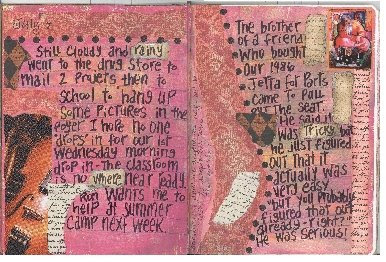 Still Cloudy and rainy
went to the drug store to
mail 2 prayers then to
school to hang up
some pictures in the
foyer I hope no one
drops in for our 1st
Wednesday morning
drop in. The classroom
is no where near ready
Ron wants me to
help at summer
camp next week.
The brother
of a friend
who bought
our 1986
Jetta for parts
came to pull
out the seat
He said it
was tricky but
he just figured
out that it
actually was
very easy
"but you probably
figured that out
already right?"
He was serious!